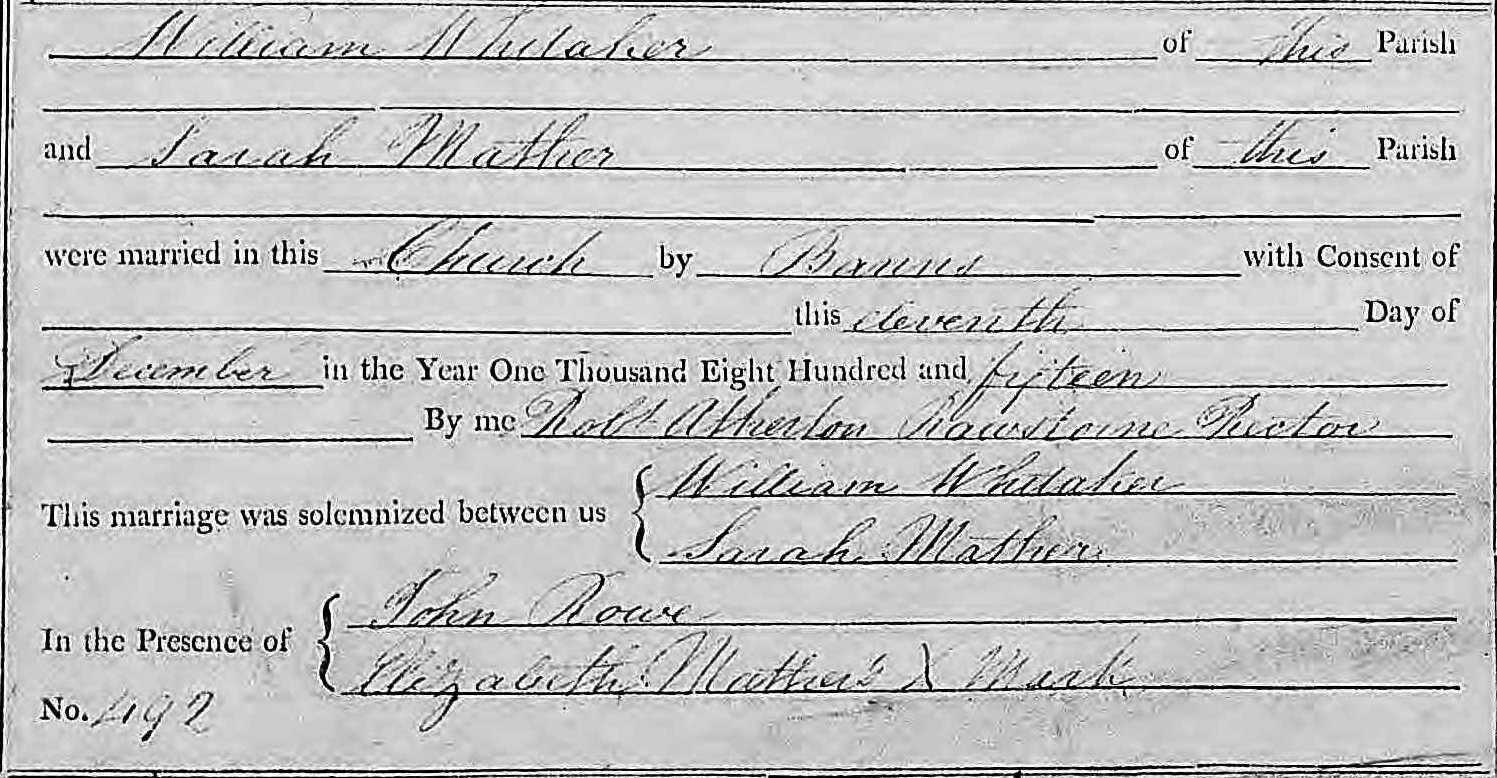 William Whitaker of this Parish
and Sarah Mather of this Parish
were married in this Church by Banns with Consent of
this eleventh Day of
December in the Year One Thousand Eight Hundred and fifteen
By me Robt Atherton Rawstorne Rector
This marriage was solemnized between us
William Whitaker
Sarah Mather
In the Presence of
John Rowe
Elizabeth Mather's X Mark
No. 492